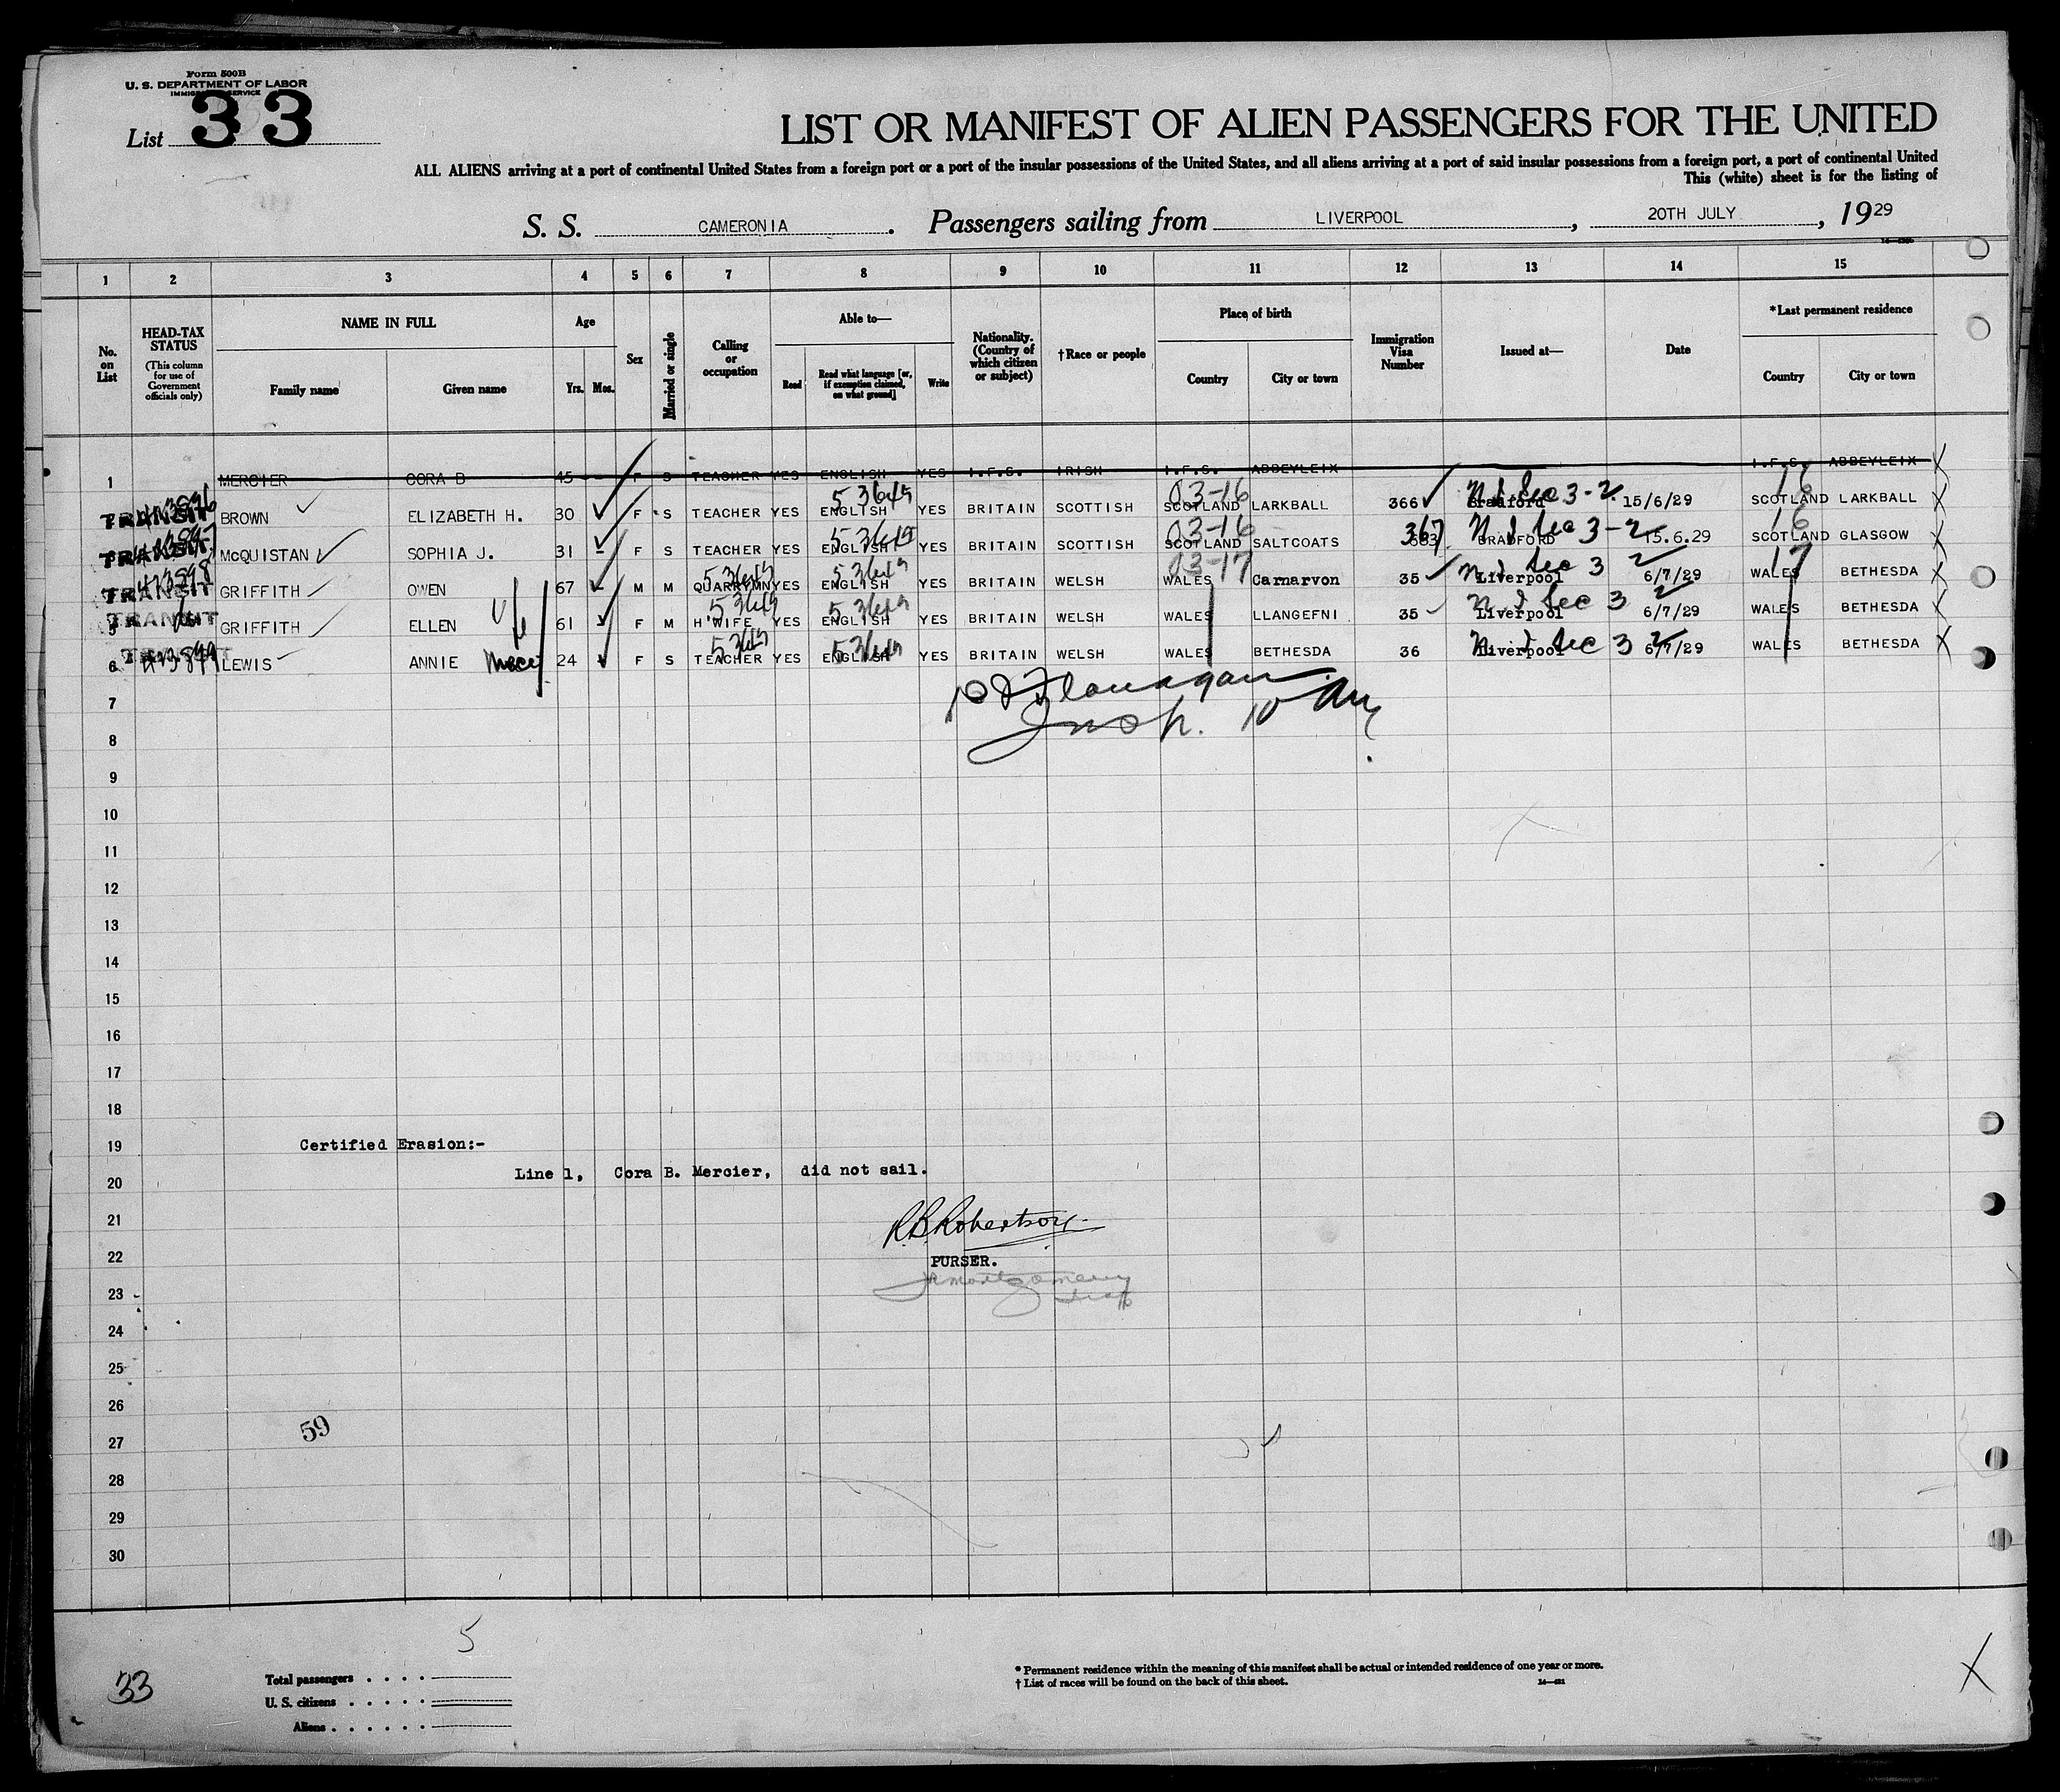 Form 500B
U. S. DEPARTMENT OF LABOR
IMMIGRATION SERVICE
List 33
LIST OR MANIFEST OF ALIEN PASSENGERS FOR THE UNITED
ALL ALIENS arriving at a port of continental United States from a foreign port or a port of the insular possessions of the United States, and all aliens arriving at a port of said insular possessions from a foreign port, a port of continental United
This (white) sheet is for the listing of
S. S. CAMERONIA. Passengers sailing from LIVERPOOL, 20TH JULY, 1929
1 2 3 4 5 6 7 8 9 10 11 12 13 14 15
No. on List
HEAD-TAX STATUS
(This column for use of Government officials only)
NAME IN FULL
Family name Given name
Age
Yrs. Mos.
Sex
Married or single
Calling or occupation
Able to—
Read Read what language [or, if exemption claimed, on what ground] Write
Nationality. (Country of which citizen or subject)
†Race or people
Place of birth
Country City or town
Immigration Visa Number
Issued at—
Date
*Last permanent residence
Country City or town
1 MERCIER CORA B 45 - F S TEACHER YES ENGLISH YES I.F.S. IRISH I.F.S. ABBEYLEIX I.F.S. ABBEYLEIX X
TRANSIT BROWN ELIZABETH H. 30 F S TEACHER YES ENGLISH YES BRITAIN SCOTTISH SCOTLAND LARKBALL 366 Bradford 15/6/29 SCOTLAND LARKBALL X
53649 03-16 Sec 3-2 16
TRANSIT McQUISTAN SOPHIA J. 31 - F S TEACHER YES ENGLISH YES BRITAIN SCOTTISH SCOTLAND SALTCOATS 367 BRADFORD 15.6.29 SCOTLAND GLASGOW X
53649 03-16 Sec 3-2 16
TRANSIT GRIFFITH OWEN 67 - M M QUARRYMN YES ENGLISH YES BRITAIN WELSH WALES Carnarvon 35 Liverpool 6/7/29 WALES BETHESDA X
53649 53649 03-17 Sec 3 2 17
TRANSIT 5 GRIFFITH ELLEN 61 F M H'WIFE YES ENGLISH YES BRITAIN WELSH WALES LLANGEFNI 35 Liverpool 6/7/29 WALES BETHESDA X
53649 53649 Sec 3 2
TRANSIT 6 LEWIS ANNIE 24 F S TEACHER YES ENGLISH YES BRITAIN WELSH WALES BETHESDA 36 Liverpool 6/7/29 WALES BETHESDA X
53649 53649 Sec 3 2
Flanagan
7 Insp.
8
9
10
11
12
13
14
15
16
17
18
19 Certified Erasion:-
20 Line 1, Cora B. Mercier, did not sail.
21 R.B.Robertson
22 PURSER.
23 Montgomery
24
25
26
27 59
28
29
30
5
33
Total passengers . . . .
U. S. citizens . . . . .
Aliens . . . . . .
* Permanent residence within the meaning of this manifest shall be actual or intended residence of one year or more.
† List of races will be found on the back of this sheet.
X